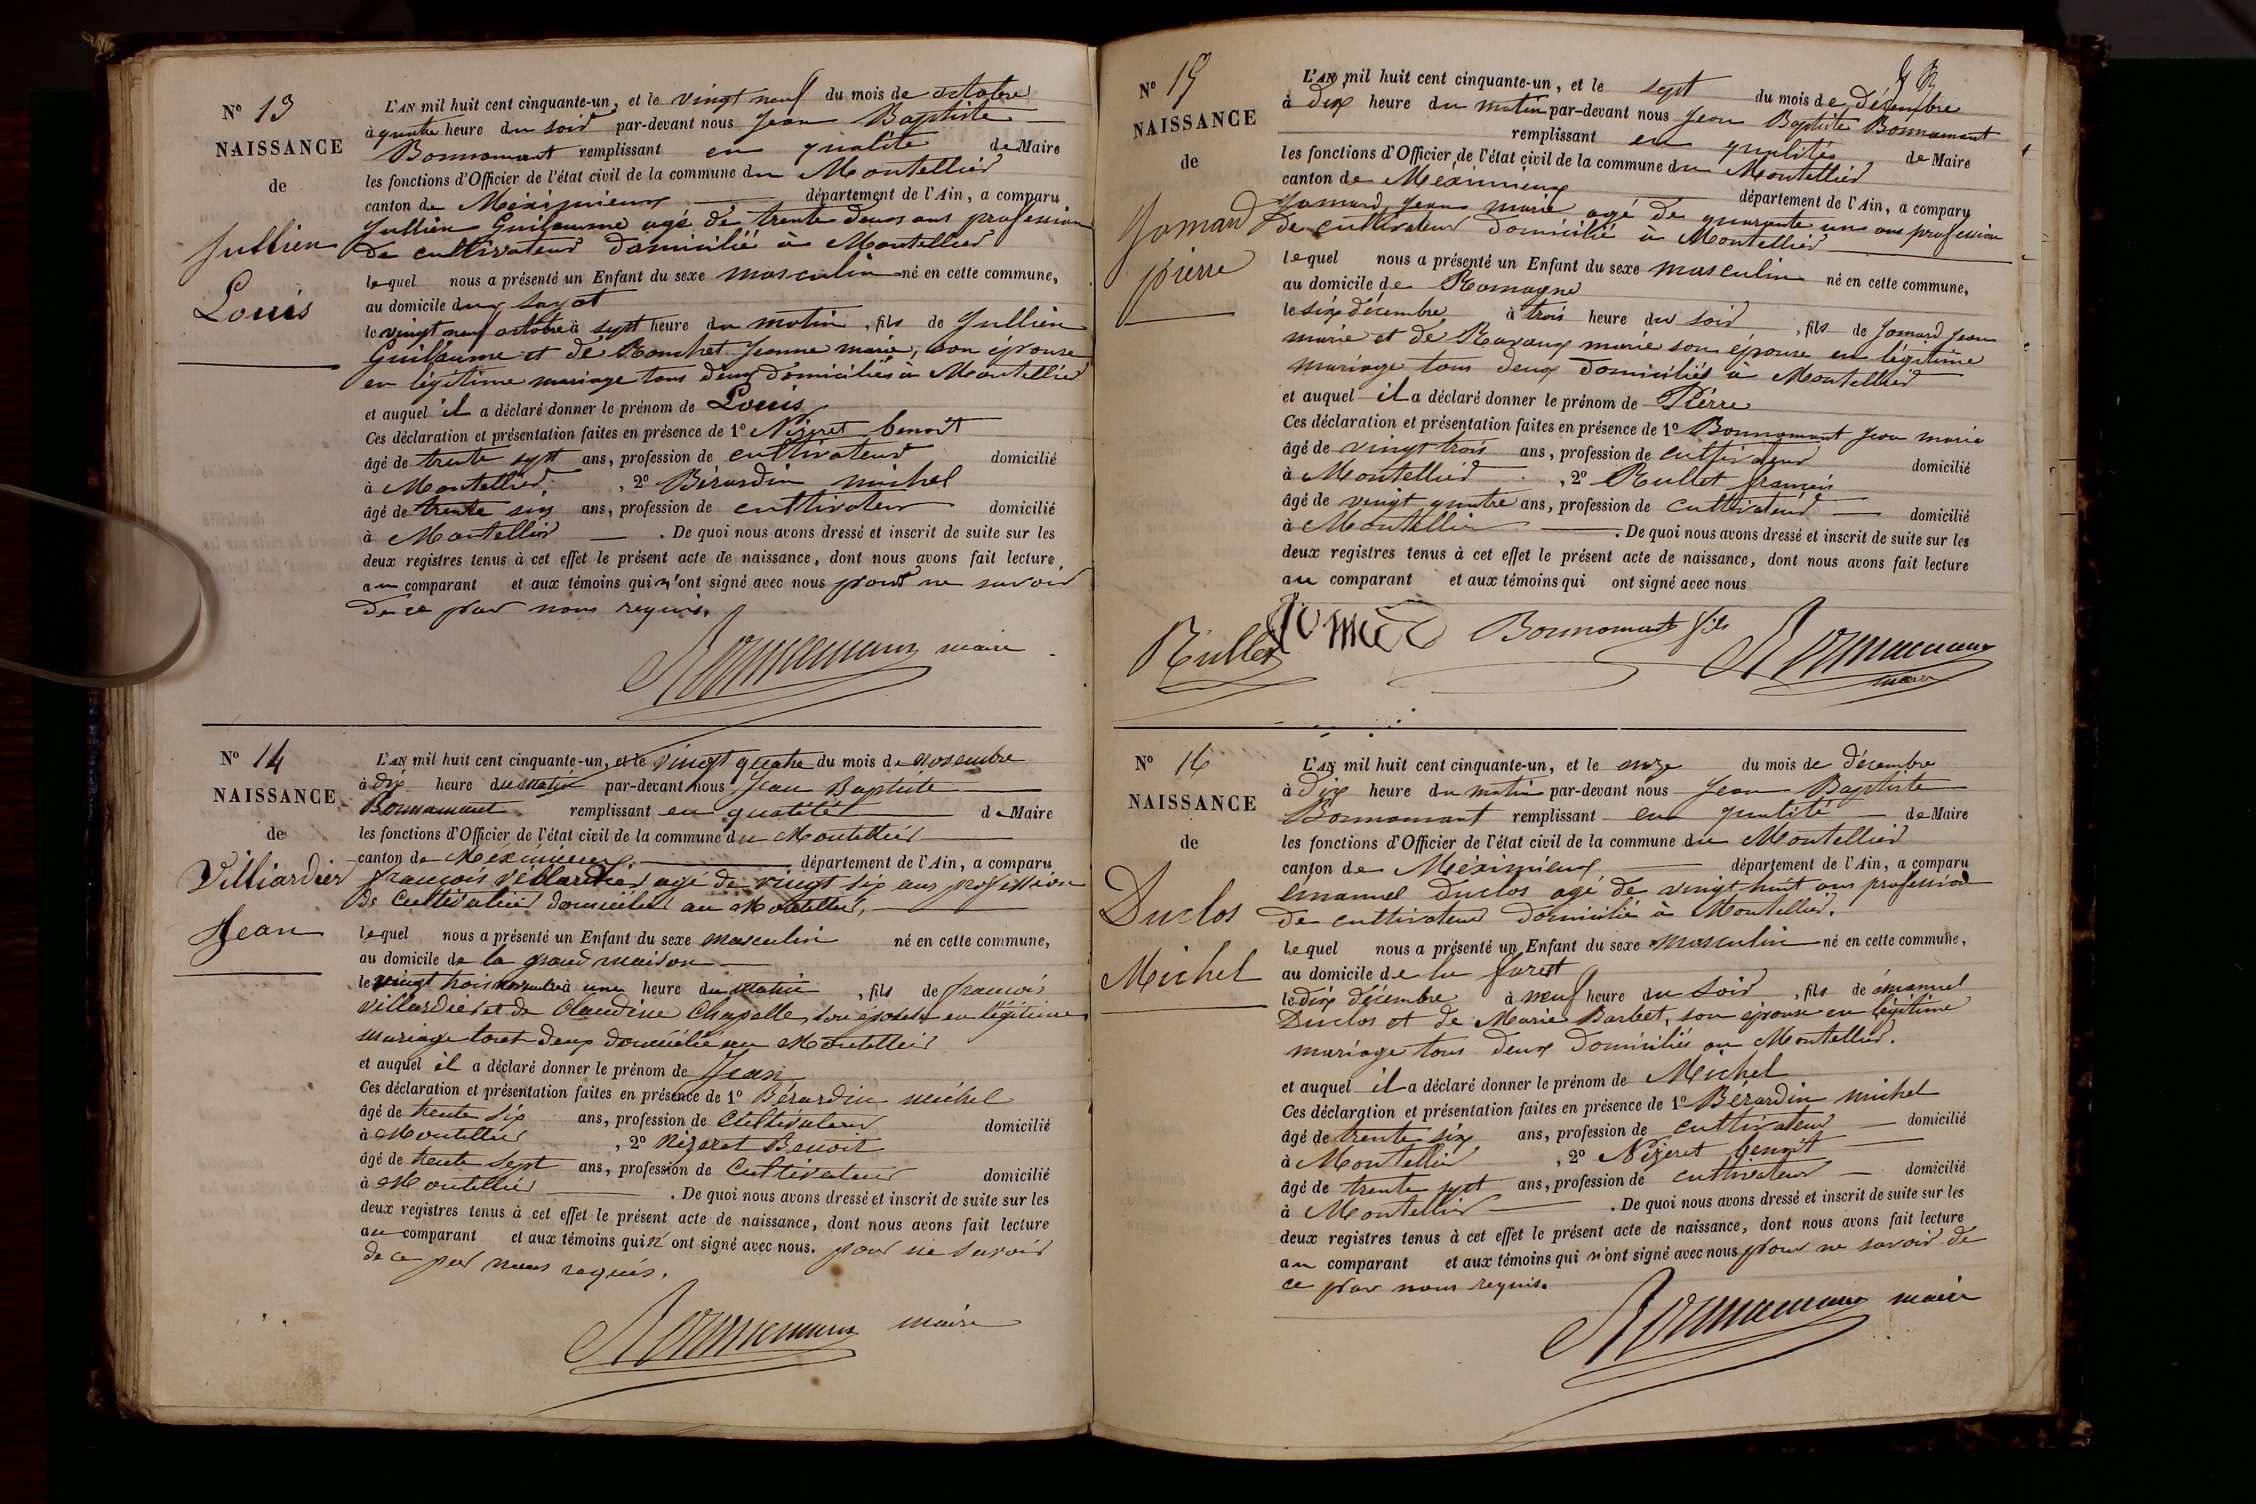 N° 13
NAISSANCE
de
Jullien
Louis
L'AN mil huit cent cinquante-un, et le vingt neuf du mois de octobre
à quatre heure du soir par-devant nous Jean Baptiste
Bonnamant remplissant en qualité de Maire
les fonctions d'Officier de l'état civil de la commune du Montellier
canton de Méximieux département de l'Ain, a comparu
Jullien Guillaume agé de trente deux ans profession
de cultivateur domicilié à Montellier
lequel nous a présenté un Enfant du sexe masculin né en cette commune,
au domicile du
le vingt neuf octobre à sept heure du matin, fils de Jullien
Guillaume et de Ronchet Jeanne marie, son épouse
en légitime mariage tous deux domiciliés à Montellier
et auquel il a déclaré donner le prénom de Louis
Ces déclaration et présentation faites en présence de 1° Nizeret benoit
âgé de trente sept ans, profession de cultivateur domicilié
à Montellier, 2° Bérardin michel
âgé de trente six ans, profession de cultivateur domicilié
à Montellier. De quoi nous avons dressé et inscrit de suite sur les
deux registres tenus à cet effet le présent acte de naissance, dont nous avons fait lecture
au comparant et aux témoins qui n'ont signé avec nous pour ne savoir
de ce par nous requis.
Bonnamant maire
N° 14
NAISSANCE
de
Villiardier
Jean
L'AN mil huit cent cinquante-un, et le vingt quatre du mois de novembre
à dix heure du matin par-devant nous Jean Baptiste
Bonnamant remplissant en qualité de Maire
les fonctions d'Officier de l'état civil de la commune du Montellier
canton de Méximieux département de l'Ain, a comparu
françois Villardier agé de vingt six ans profission
De Cultivateur domicilié au Montellier,
lequel nous a présenté un Enfant du sexe masculin né en cette commune,
au domicile de la grand maison
le vingt trois novembre à une heure du matin, fils de francois
Villardier et de Claudine Chapelle, son épouse en légitime
mariage tout deux domicilié au Montellier
et auquel il a déclaré donner le prénom de Jean
Ces déclaration et présentation faites en présence de 1° Bérardin michel
âgé de trente six ans, profession de Cultivateur domicilié
à Montellier, 2° Nizeret Benoit
âgé de trente sept ans, profession de Cultivateur domicilié
à Montellier. De quoi nous avons dressé et inscrit de suite sur les
deux registres tenus à cet effet le présent acte de naissance, dont nous avons fait lecture
au comparant et aux témoins qui n'ont signé avec nous. pour ne savoir
de ce par nous requis.
Bonnamant maire
N° 15
NAISSANCE
de
Jomard
pierre
L'AN mil huit cent cinquante-un, et le sept du mois de décembre
à dix heure du matin par-devant nous Jean Baptiste Bonnamant
remplissant en qualité de Maire
les fonctions d'Officier de l'état civil de la commune du Montellier
canton de Méximieux département de l'Ain, a comparu
Jomard Jean marie agé de quarante un ans profession
de cultivateur domicilié à Montellier
lequel nous a présenté un Enfant du sexe masculin né en cette commune,
au domicile de Romagne
le six décembre à trois heure du soir, fils de Jomard Jean
marie et de Ravaux marie son épouse en légitime
mariage tous deux domiciliés à Montellier
et auquel il a déclaré donner le prénom de Piérre
Ces déclaration et présentation faites en présence de 1° Bonnamant Jean marie
âgé de vingt trois ans, profession de cultivateur domicilié
à Montellier, 2° Rullet françois
âgé de vingt quatre ans, profession de cultivateur domicilié
à Montellier. De quoi nous avons dressé et inscrit de suite sur les
deux registres tenus à cet effet le présent acte de naissance, dont nous avons fait lecture
au comparant et aux témoins qui ont signé avec nous
Rullet Bonnamant fils Bonnamant
maire
N° 16
NAISSANCE
de
Duclos
Michel
L'AN mil huit cent cinquante-un, et le onze du mois de décembre
à Dix heure du matin par-devant nous Jean Baptiste
Bonnamant remplissant en qualité de Maire
les fonctions d'Officier de l'état civil de la commune du Montellier
canton de Méximieux département de l'Ain, a comparu
émanuel Duclos agé de vingt huit ans profession
de cultivateur domicilié à Montellier.
lequel nous a présenté un Enfant du sexe masculin né en cette commune,
au domicile de la foret
le dix décembre à neuf heure du soir, fils de émanuel
Duclos et de Marie Barbet, son épouse en légitime
mariage tous deux domiciliés au Montellier.
et auquel il a déclaré donner le prénom de Michel
Ces déclaration et présentation faites en présence de 1° Bérardin michel
âgé de trente six ans, profession de cultivateur domicilié
à Montellier, 2° Nizeret benoit
âgé de trente sept ans, profession de cultivateur domicilié
à Montellier. De quoi nous avons dressé et inscrit de suite sur les
deux registres tenus à cet effet le présent acte de naissance, dont nous avons fait lecture
au comparant et aux témoins qui n'ont signé avec nous pour ne savoir de
ce par nous requis.
Bonnamant maire